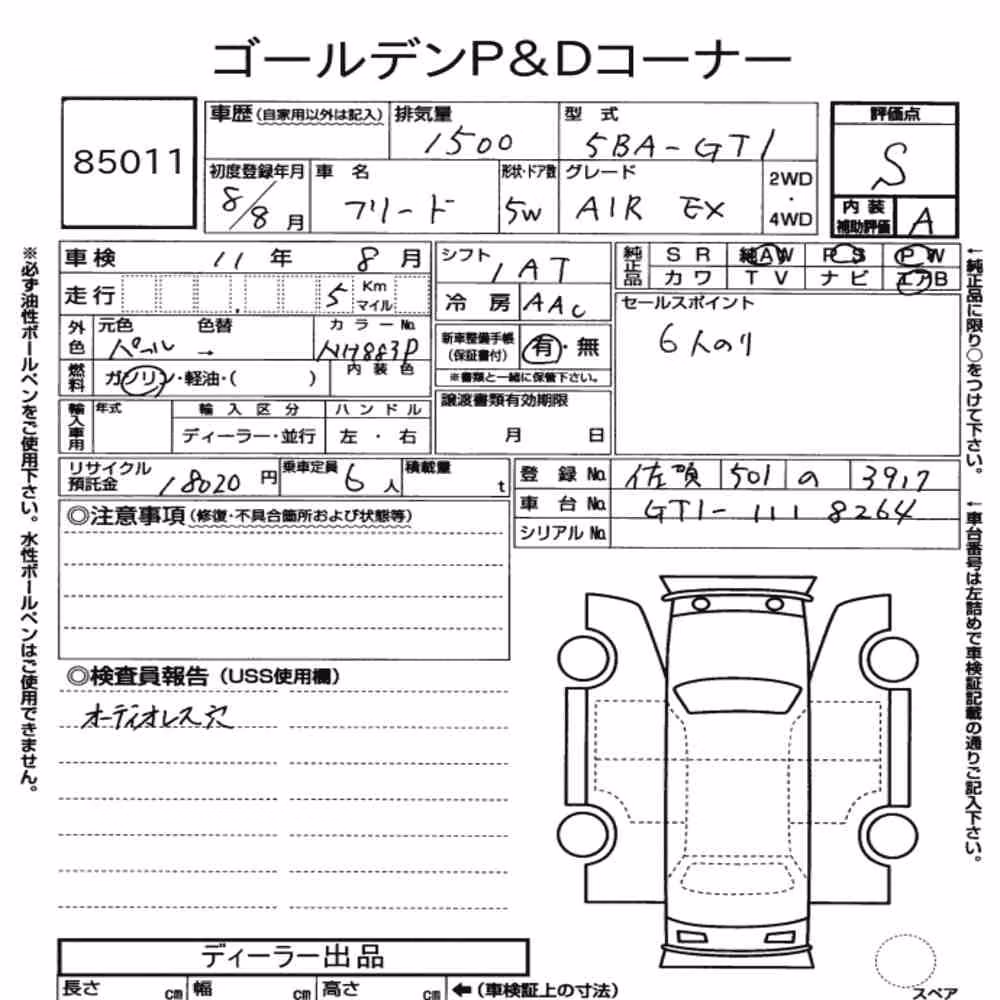 ゴールデンP&Dコーナー
85011
車歴(自家用以外は記入) 排気量 1500 型式 5BA-GT1
評価点 S
初度登録年月 8/8月 車名 フリード 形状・ドア数 5W グレード AIR EX 2WD・4WD
内装補助評価 A
車検 11年 8月
シフト IAT
純正品 SR 純AW PS PW
カワ TV ナビ エアB
走行 5 Km マイル
冷房 AAC
セールスポイント
6人のり
外色 元色 パール → 色替 カラーNo. NH883P
新車整備手帳(保証書付) 有・無
※書類と一緒に保管下さい。
燃料 ガソリン・軽油・( ) 内装色
輸入車用 年式 輸入区分 ハンドル
ディーラー・並行 左・右
譲渡書類有効期限
月 日
リサイクル預託金 18020円 乗車定員 6人 積載量 t
登録No. 佐賀 501 の 3917
車台No. GT1-1118264
シリアルNo.
◎注意事項(修復・不具合箇所および状態等)
◎検査員報告(USS使用欄)
オーディオレス穴
ディーラー出品
長さ cm 幅 cm 高さ cm ←(車検証上の寸法)
スペア
※必ず油性ボールペンをご使用下さい。水性ボールペンはご使用できません。
←純正品に限り○をつけて下さい。
←車台番号は左詰めで車検証記載の通りご記入下さい。